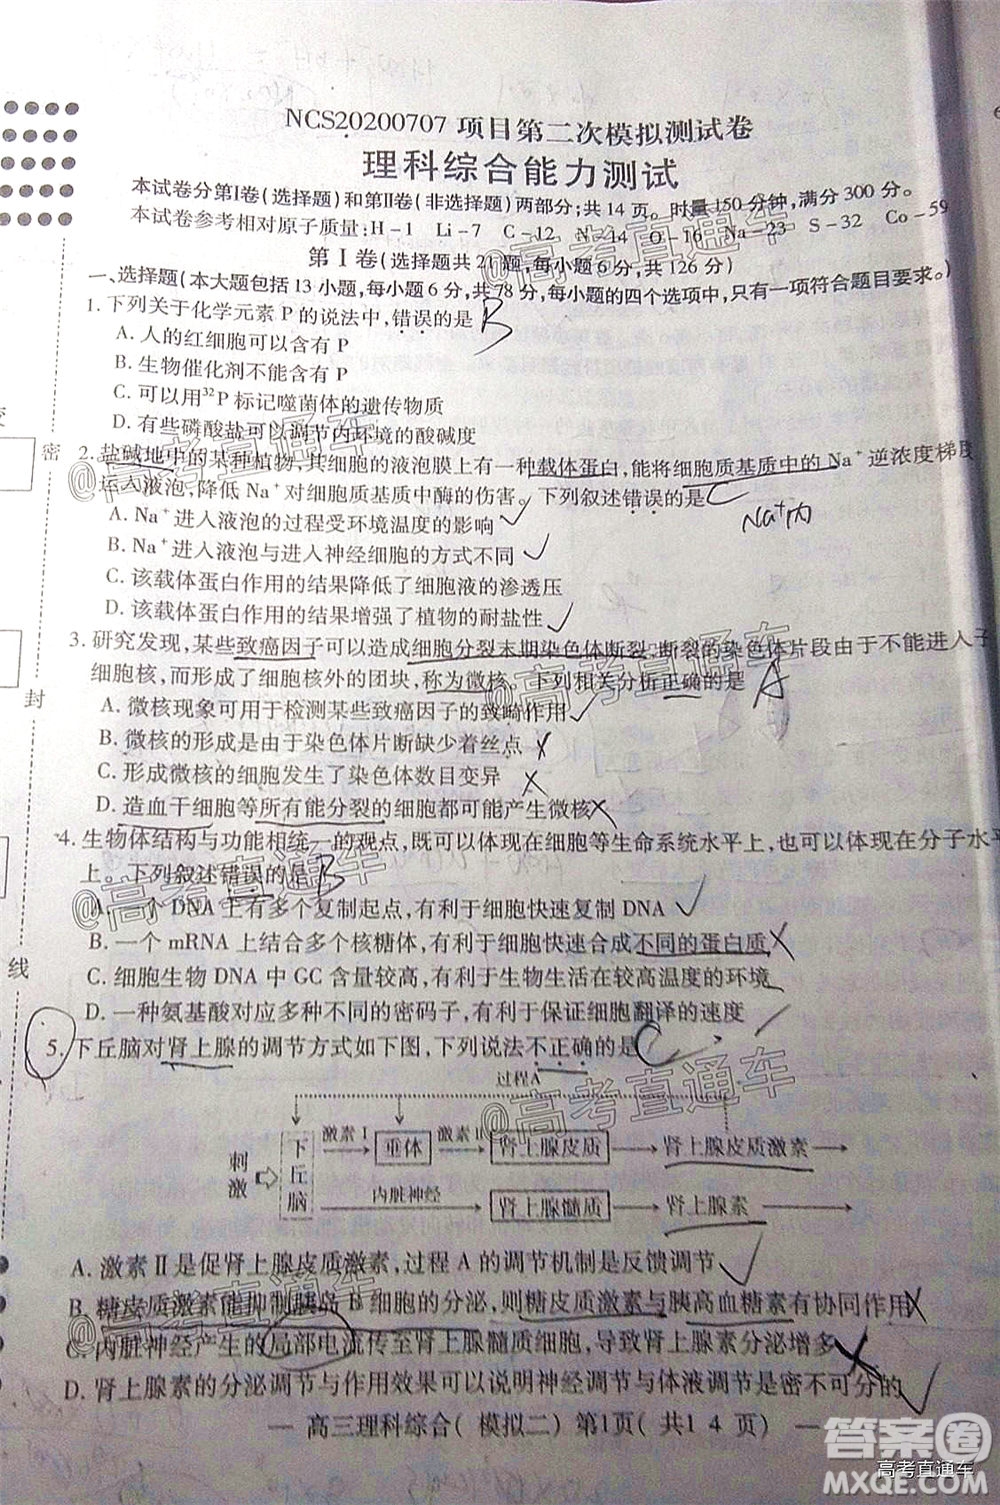 NCS20200707 项目第二次模拟测试卷
理科综合能力测试
本试卷分第Ⅰ卷(选择题)和第Ⅱ卷(非选择题)两部分;共14页。时量150分钟,满分300分。
本试卷参考相对原子质量:H-1 Li-7 C-12 N-14 O-16 Na-23 S-32 Co-59
第Ⅰ卷(选择题共21题,每小题6分,共126分)
一、选择题(本大题包括13小题,每小题6分,共78分,每小题的四个选项中,只有一项符合题目要求。)
1. 下列关于化学元素P的说法中,错误的是 B
A. 人的红细胞可以含有P
B. 生物催化剂不能含有P
C. 可以用³²P标记噬菌体的遗传物质
D. 有些磷酸盐可以调节内环境的酸碱度
密
2. 盐碱地中的某种植物,其细胞的液泡膜上有一种载体蛋白,能将细胞质基质中的Na⁺逆浓度梯度
运入液泡,降低Na⁺对细胞质基质中酶的伤害。下列叙述错误的是 C
Na⁺内
A. Na⁺进入液泡的过程受环境温度的影响
B. Na⁺进入液泡与进入神经细胞的方式不同
C. 该载体蛋白作用的结果降低了细胞液的渗透压
D. 该载体蛋白作用的结果增强了植物的耐盐性
3. 研究发现,某些致癌因子可以造成细胞分裂末期染色体断裂,断裂的染色体片段由于不能进入子
细胞核,而形成了细胞核外的团块,称为微核。下列相关分析正确的是 A
封
A. 微核现象可用于检测某些致癌因子的致畸作用
B. 微核的形成是由于染色体片断缺少着丝点
C. 形成微核的细胞发生了染色体数目变异
D. 造血干细胞等所有能分裂的细胞都可能产生微核
4. 生物体结构与功能相统一的观点,既可以体现在细胞等生命系统水平上,也可以体现在分子水平
上。下列叙述错误的是 B
A. 一个DNA上有多个复制起点,有利于细胞快速复制DNA
B. 一个mRNA上结合多个核糖体,有利于细胞快速合成不同的蛋白质
线
C. 细胞生物DNA中GC含量较高,有利于生物生活在较高温度的环境
D. 一种氨基酸对应多种不同的密码子,有利于保证细胞翻译的速度
5. 下丘脑对肾上腺的调节方式如下图,下列说法不正确的是 C
过程A
刺激
下丘脑
激素Ⅰ
垂体
激素Ⅱ
肾上腺皮质
肾上腺皮质激素
内脏神经
肾上腺髓质
肾上腺素
A. 激素Ⅱ是促肾上腺皮质激素,过程A的调节机制是反馈调节
B. 糖皮质激素能抑制胰岛B细胞的分泌,则糖皮质激素与胰高血糖素有协同作用
C. 内脏神经产生的局部电流传至肾上腺髓质细胞,导致肾上腺素分泌增多
D. 肾上腺素的分泌调节与作用效果可以说明神经调节与体液调节是密不可分的
— 高三理科综合(模拟二) 第1页(共14页) —
@高考直通车
@高考直通车
@高考直通车
@高考直通车
@高考直通车
@高考直通车
答案圈
高考直通车
MXQE.COM